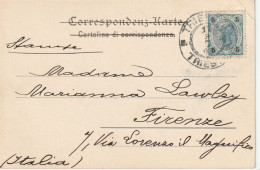 Correspondenz-Karte
Cartolina di corrispondenza.
TRIEST
5 5
TRIES
Madame
Marianna Lawley
Firenze
7, Via Lorenzo il Magnifico
(Italia)